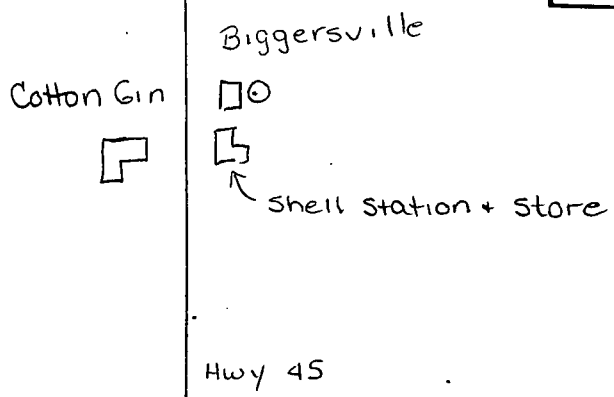 Biggersville
Cotton Gin
Shell Station + Store
Hwy 45